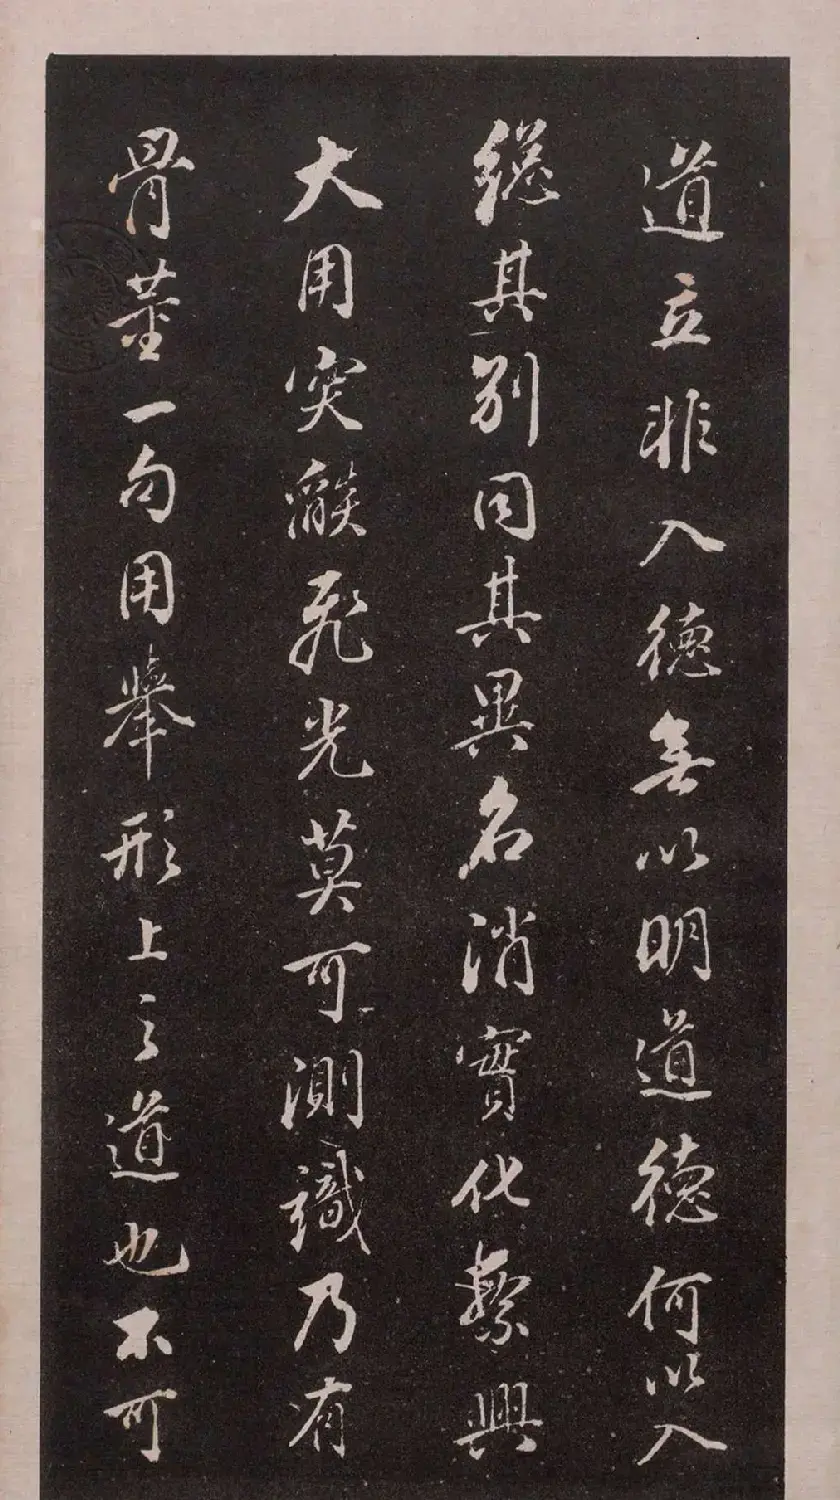 道立非入德無以明道德何以入
總其別同其異名消實化繁興
大用突燄飛光莫可測識乃有
骨董一句用舉形上之道也不可